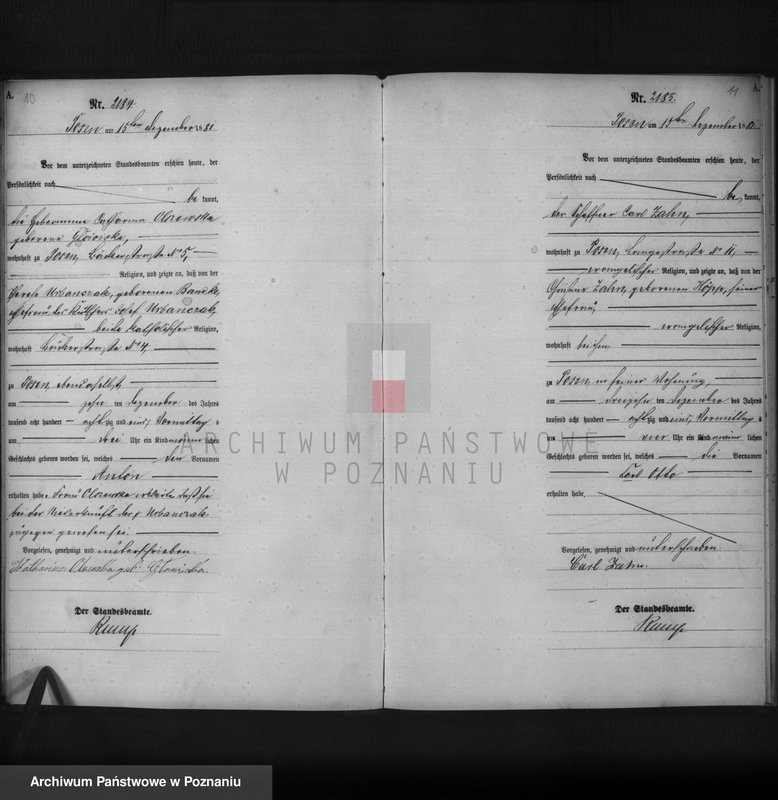 A. 10
Nr. 2184.
Posen am 15ten Dezember 1881
Vor dem unterzeichneten Standesbeamten erschien heute, der
Persönlichkeit nach
be kannt,
die Hebeamme Catharina Olszewska
geborene
wohnhaft zu Posen, Bäckerstraße No 5,
Religion, und zeigte an, daß von der
Therese Urbanczak, geborenen
Ehefrau des Kutschers Josef Urbanczak,
beide katholischer Religion,
wohnhaft Bäckerstraße No 4,
zu Posen, ebendaselbst
am zehn ten Dezember des Jahres
tausend acht hundert achtzig und eins, Vormittag s
um drei Uhr ein Kind männ lichen
Geschlechts geboren worden sei, welches den Vornamen
Anton
erhalten habe. Frau Olszewska erklärte daß sie
bei der Niederkunft der p Urbanczak
zugegen gewesen sei.
Vorgelesen, genehmigt und unterschrieben.
Katharina geb.
Der Standesbeamte.
Rump
11 A.
Nr. 2185.
Posen am 15ten Dezember 1881
Vor dem unterzeichneten Standesbeamten erschien heute, der
Persönlichkeit nach
be kannt,
der Schaffner Carl Zahn,
wohnhaft zu Posen, Langestraße No 11,
evangelischer Religion, und zeigte an, daß von der
Zahn, geborenen Köpp, seiner
Ehefrau,
evangelischer Religion,
wohnhaft bei ihm,
zu Posen in seiner Wohnung,
am dreizehn ten Dezember des Jahres
tausend acht hundert achtzig und eins, Vormittag s
um vier Uhr ein Kind männ lichen
Geschlechts geboren worden sei, welches die Vornamen
Carl Otto
erhalten habe.
Vorgelesen, genehmigt und unterschrieben.
Carl Zahn.
Der Standesbeamte.
Rump
ARCHIWUM PAŃSTWOWE
W POZNANIU
Archiwum Państwowe w Poznaniu